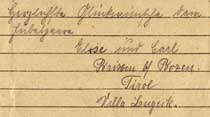 Herzlichste Glückwünsche dem
Jubelpaare
Elise und Carl
Bozen
Tirol
Villa